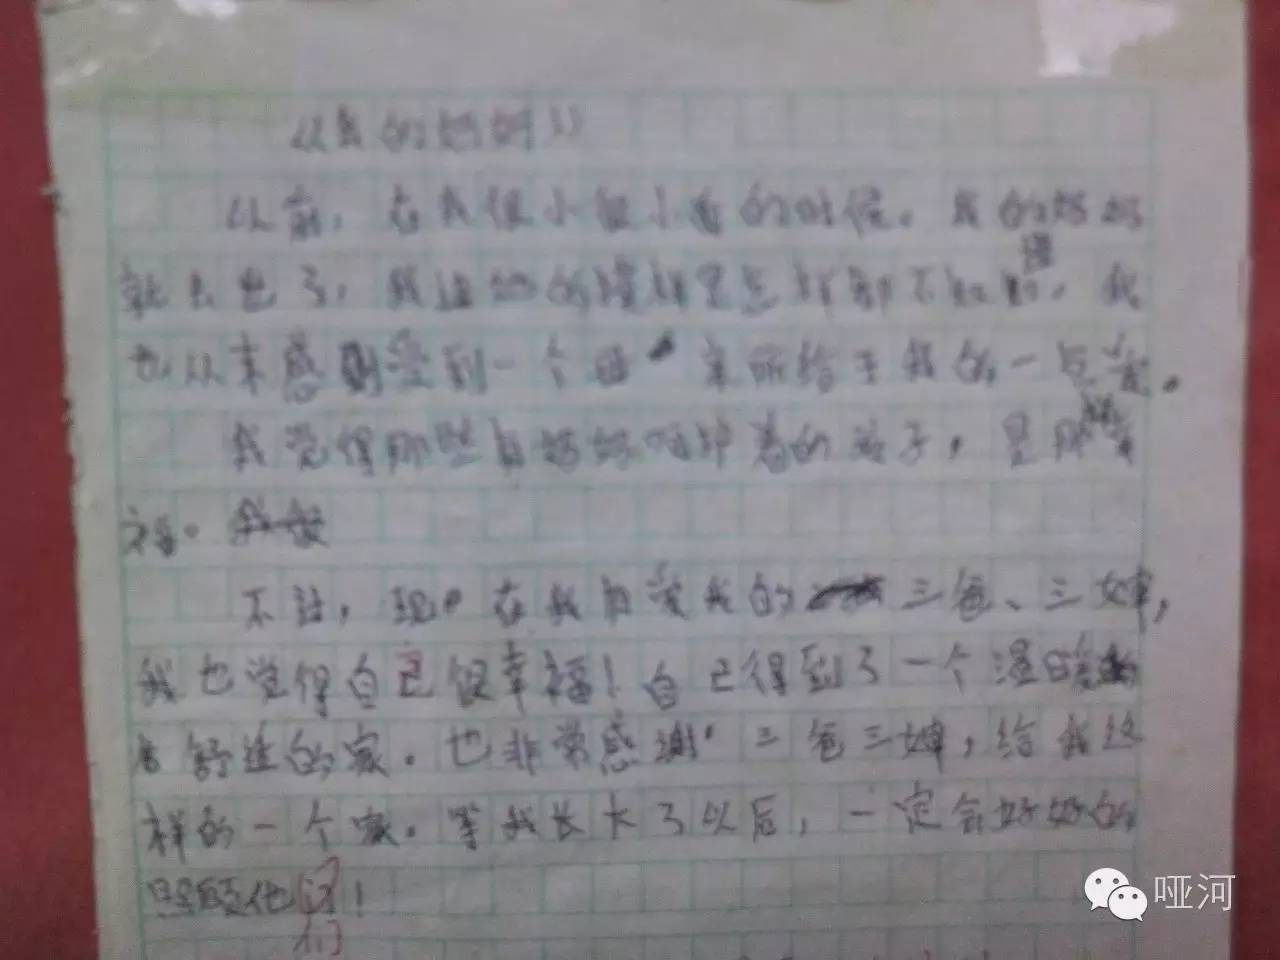 《我的妈妈》
以前，在我很小很小的时候，我的妈妈
就去世了，我连她的模样是怎样都不知道，我
也从未感受到一个母亲所给于我的一点爱。
我觉得那些有妈妈呵护着的孩子，是那幸
福。
不过，现在我有爱我的三爸、三婶，
我也觉得自己很幸福！自己得到了一个温暖
舒适的家。也非常感谢三爸三婶，给我这
样的一个家。等我长大了以后，一定会好好的
照顾他们！
们
哑河